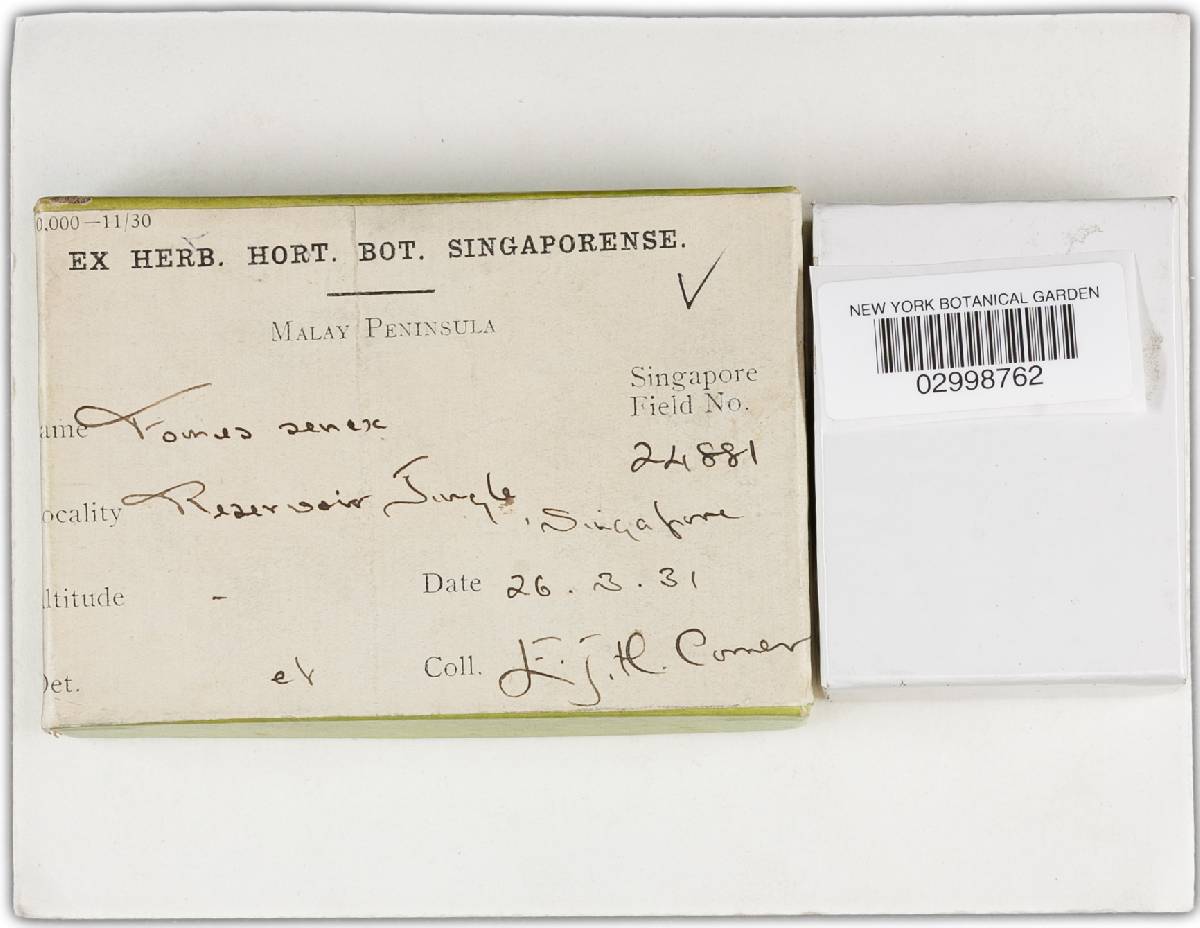 0.000-11/30
EX HERB. HORT. BOT. SINGAPORENSE.
MALAY PENINSULA
Singapore
Field No.
24881
ame Fomes senex
ocality Reservoir Jungle, Singapore
ltitude - Date 26.3.31
et. et Coll. E.J.H. Corner
NEW YORK BOTANICAL GARDEN
02998762